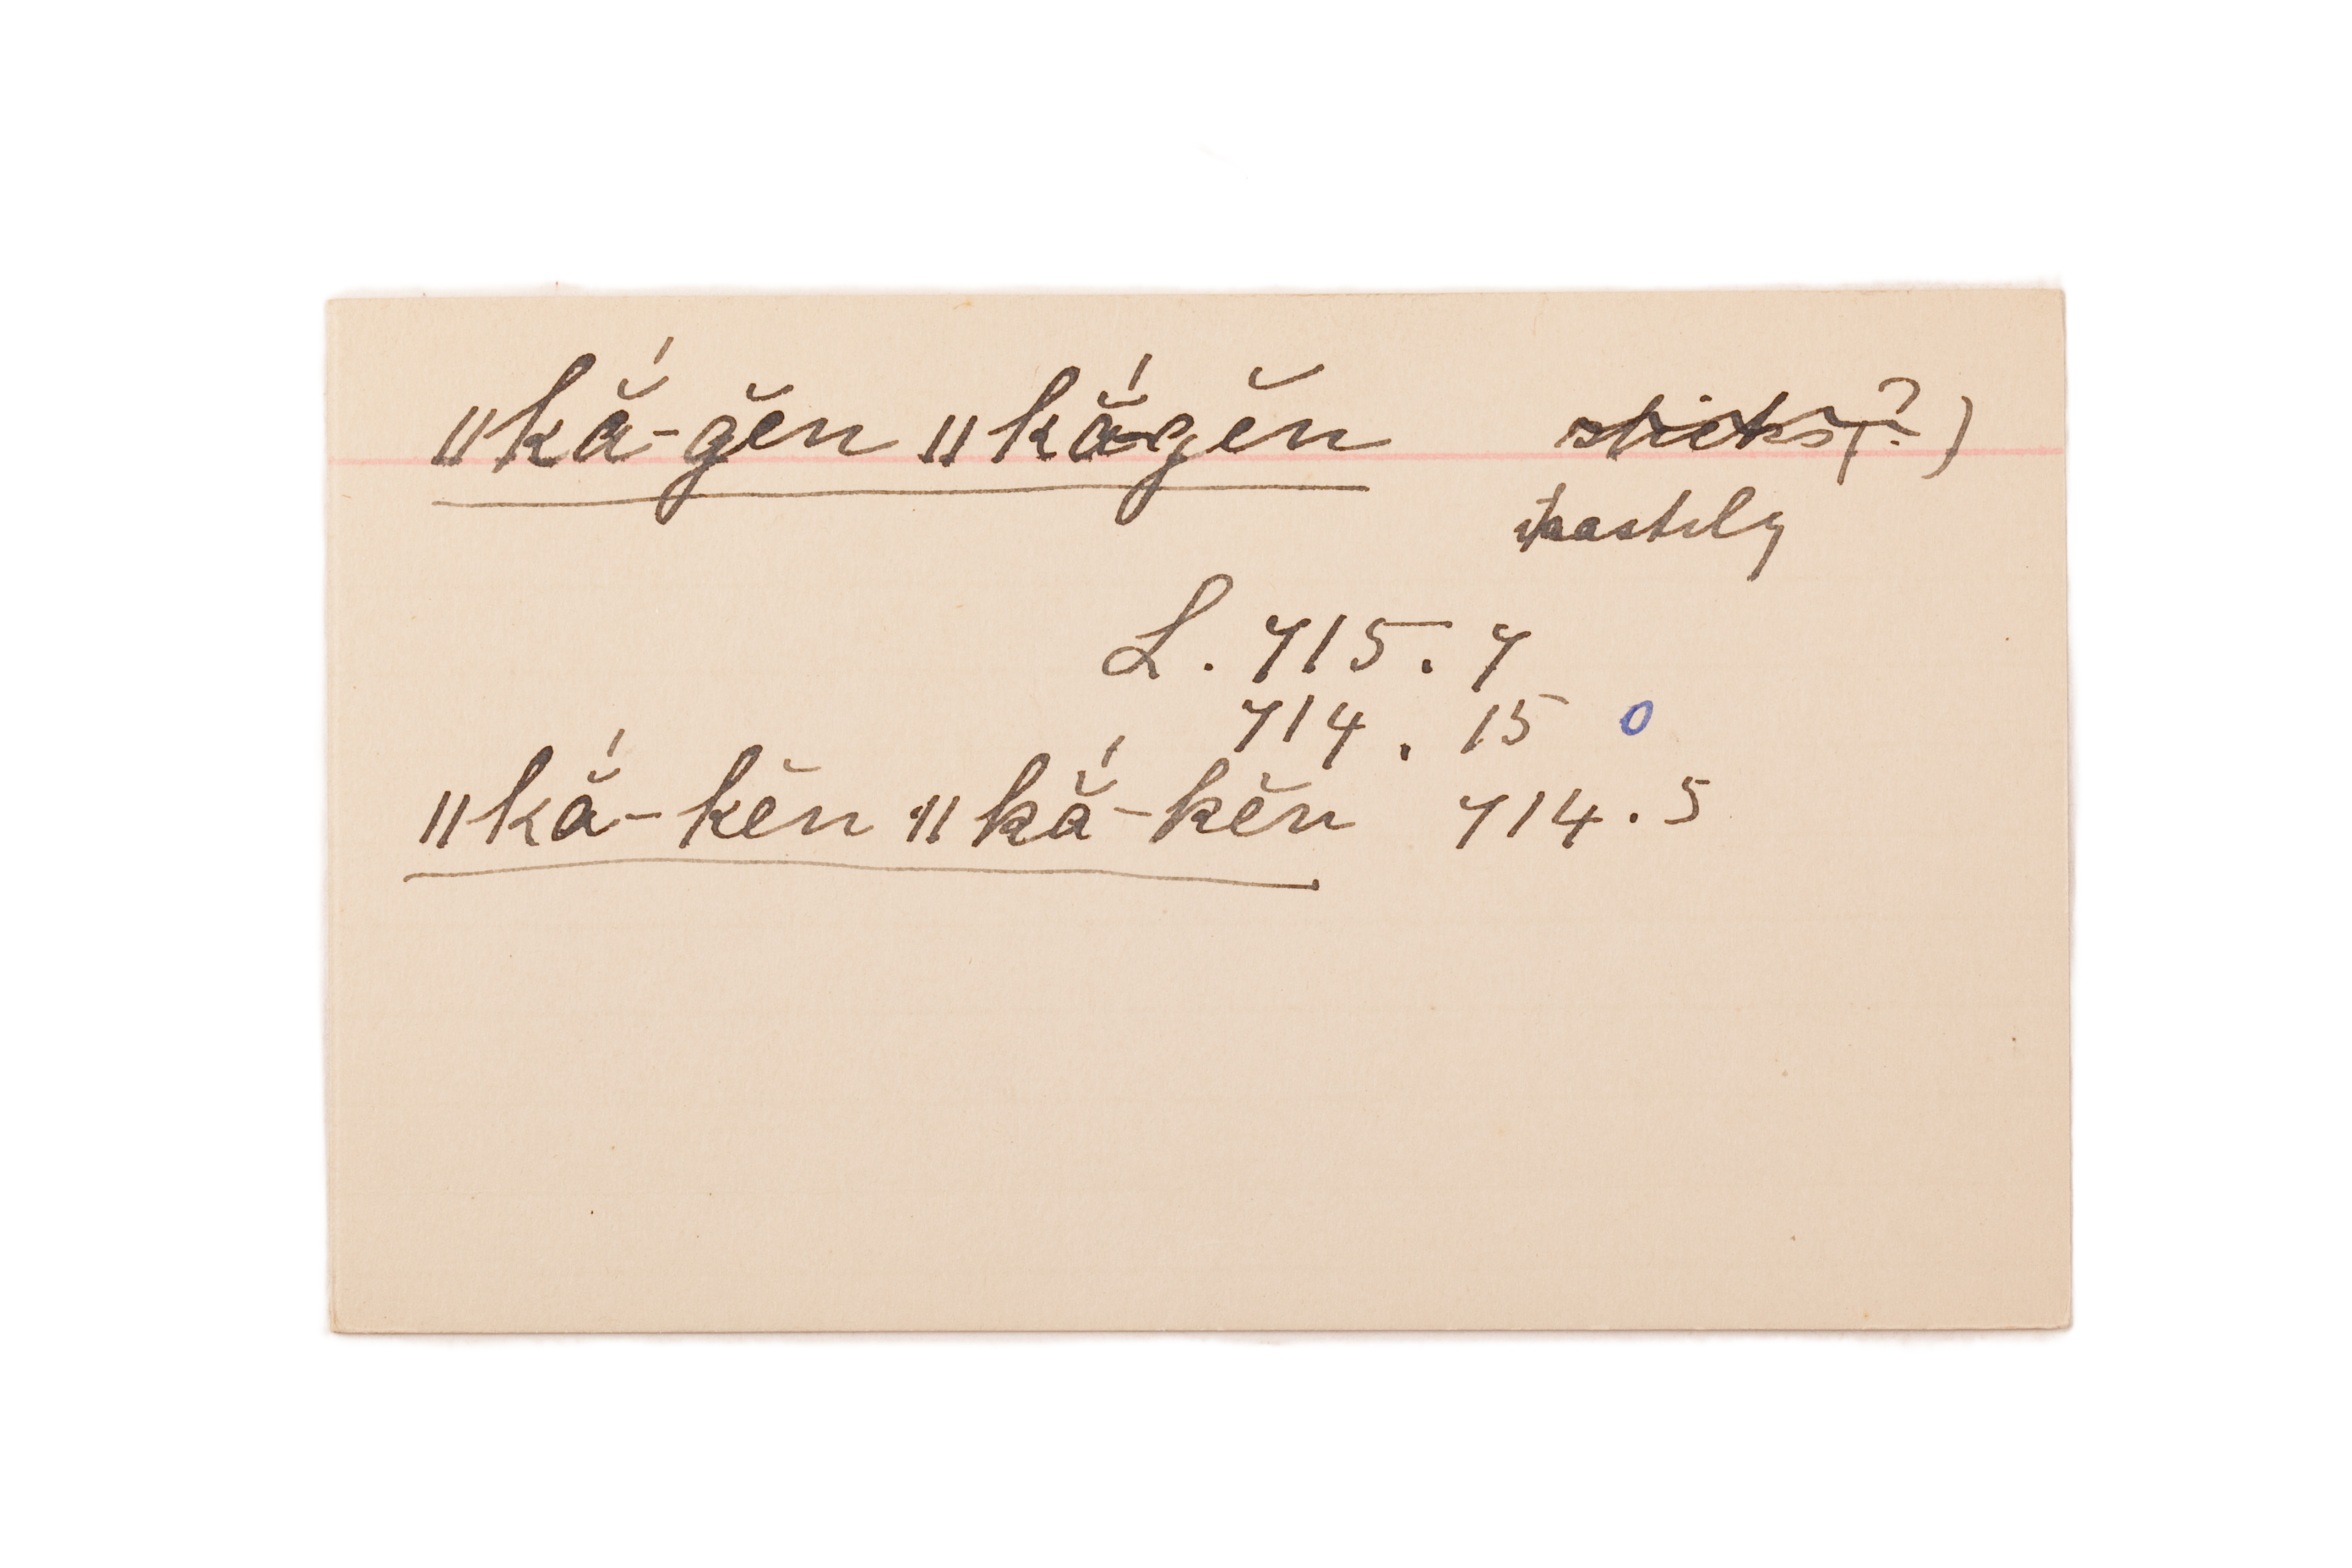 ǁkắ-gĕn ǁkắ-gĕn sticks(?)
hastily
L. 715. 7
714. 15 0
ǁkắ-kĕn ǁkắ-kĕn 714. 5